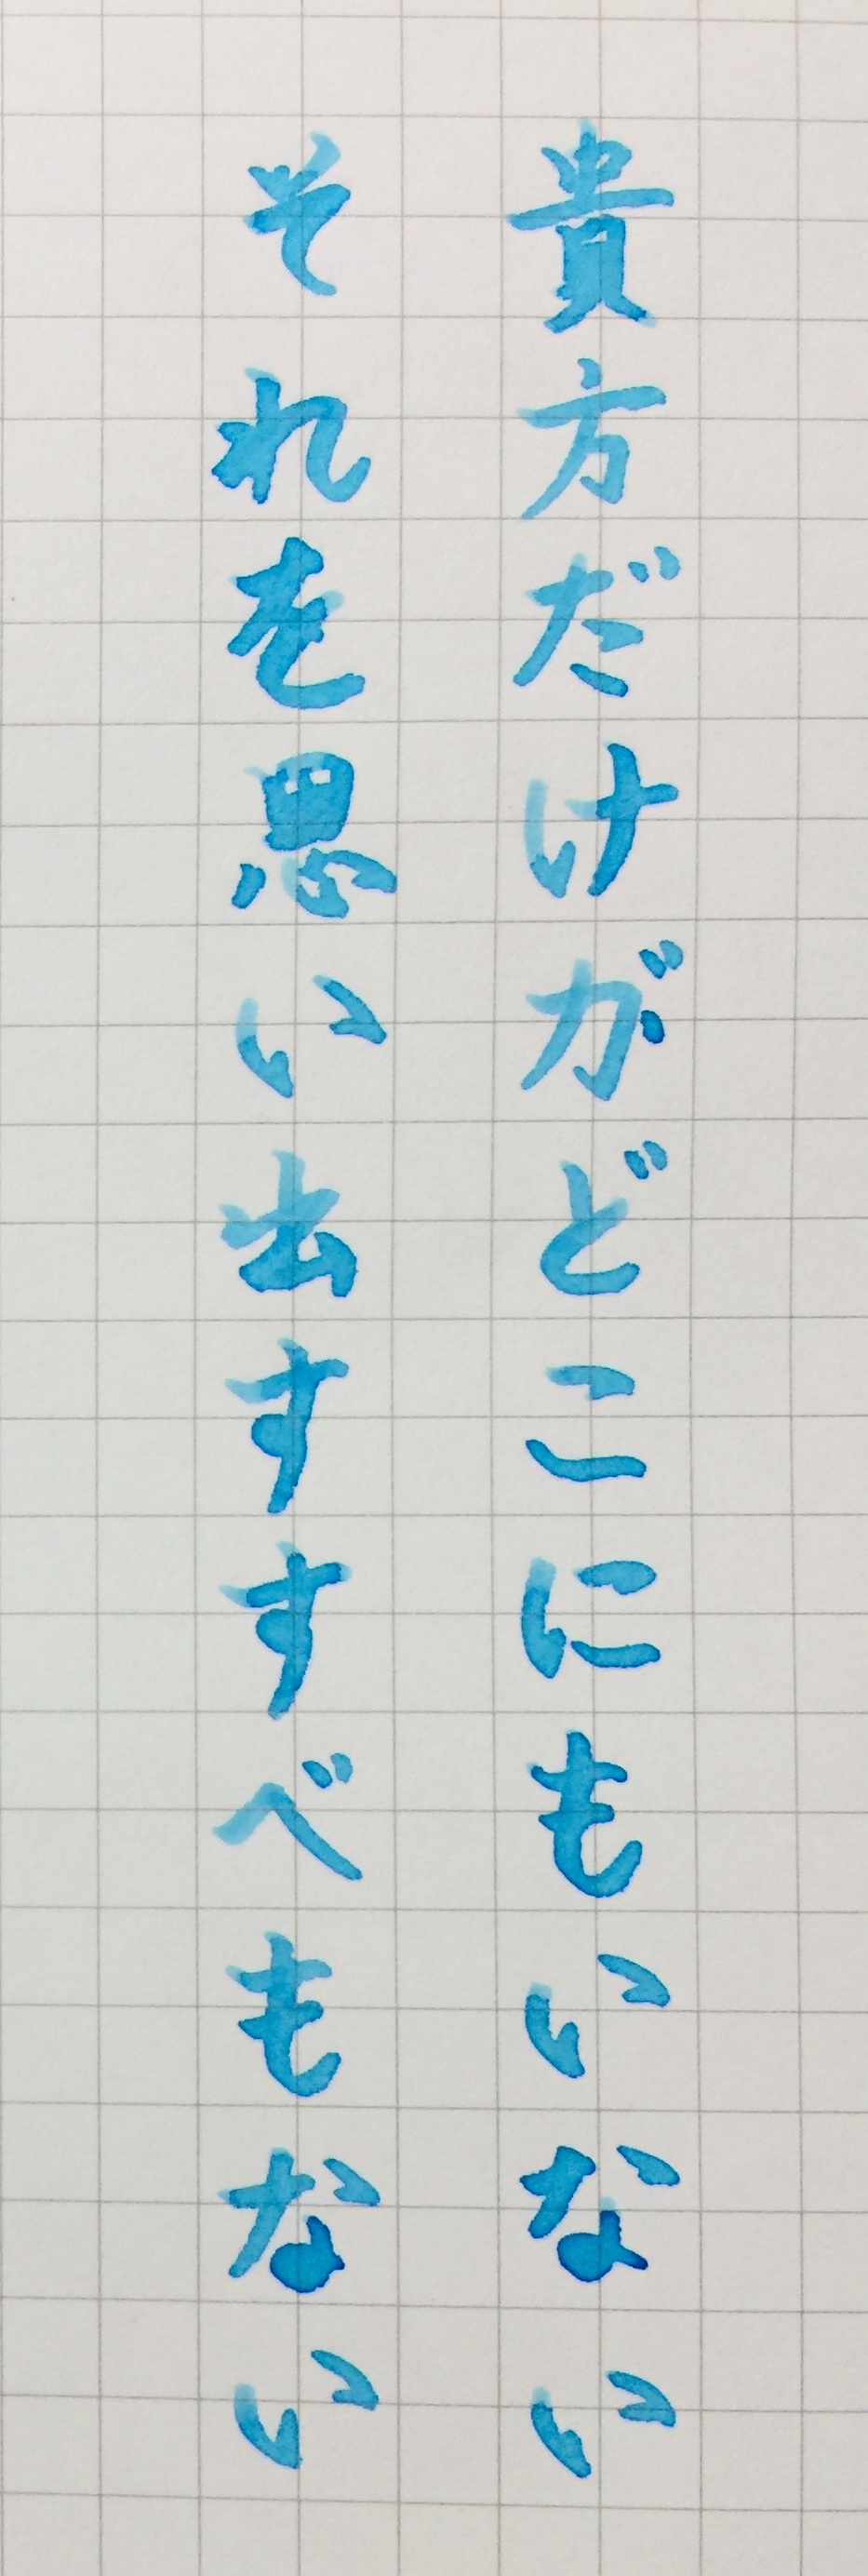 貴方だけがどこにもいない
それを思い出すすべもない